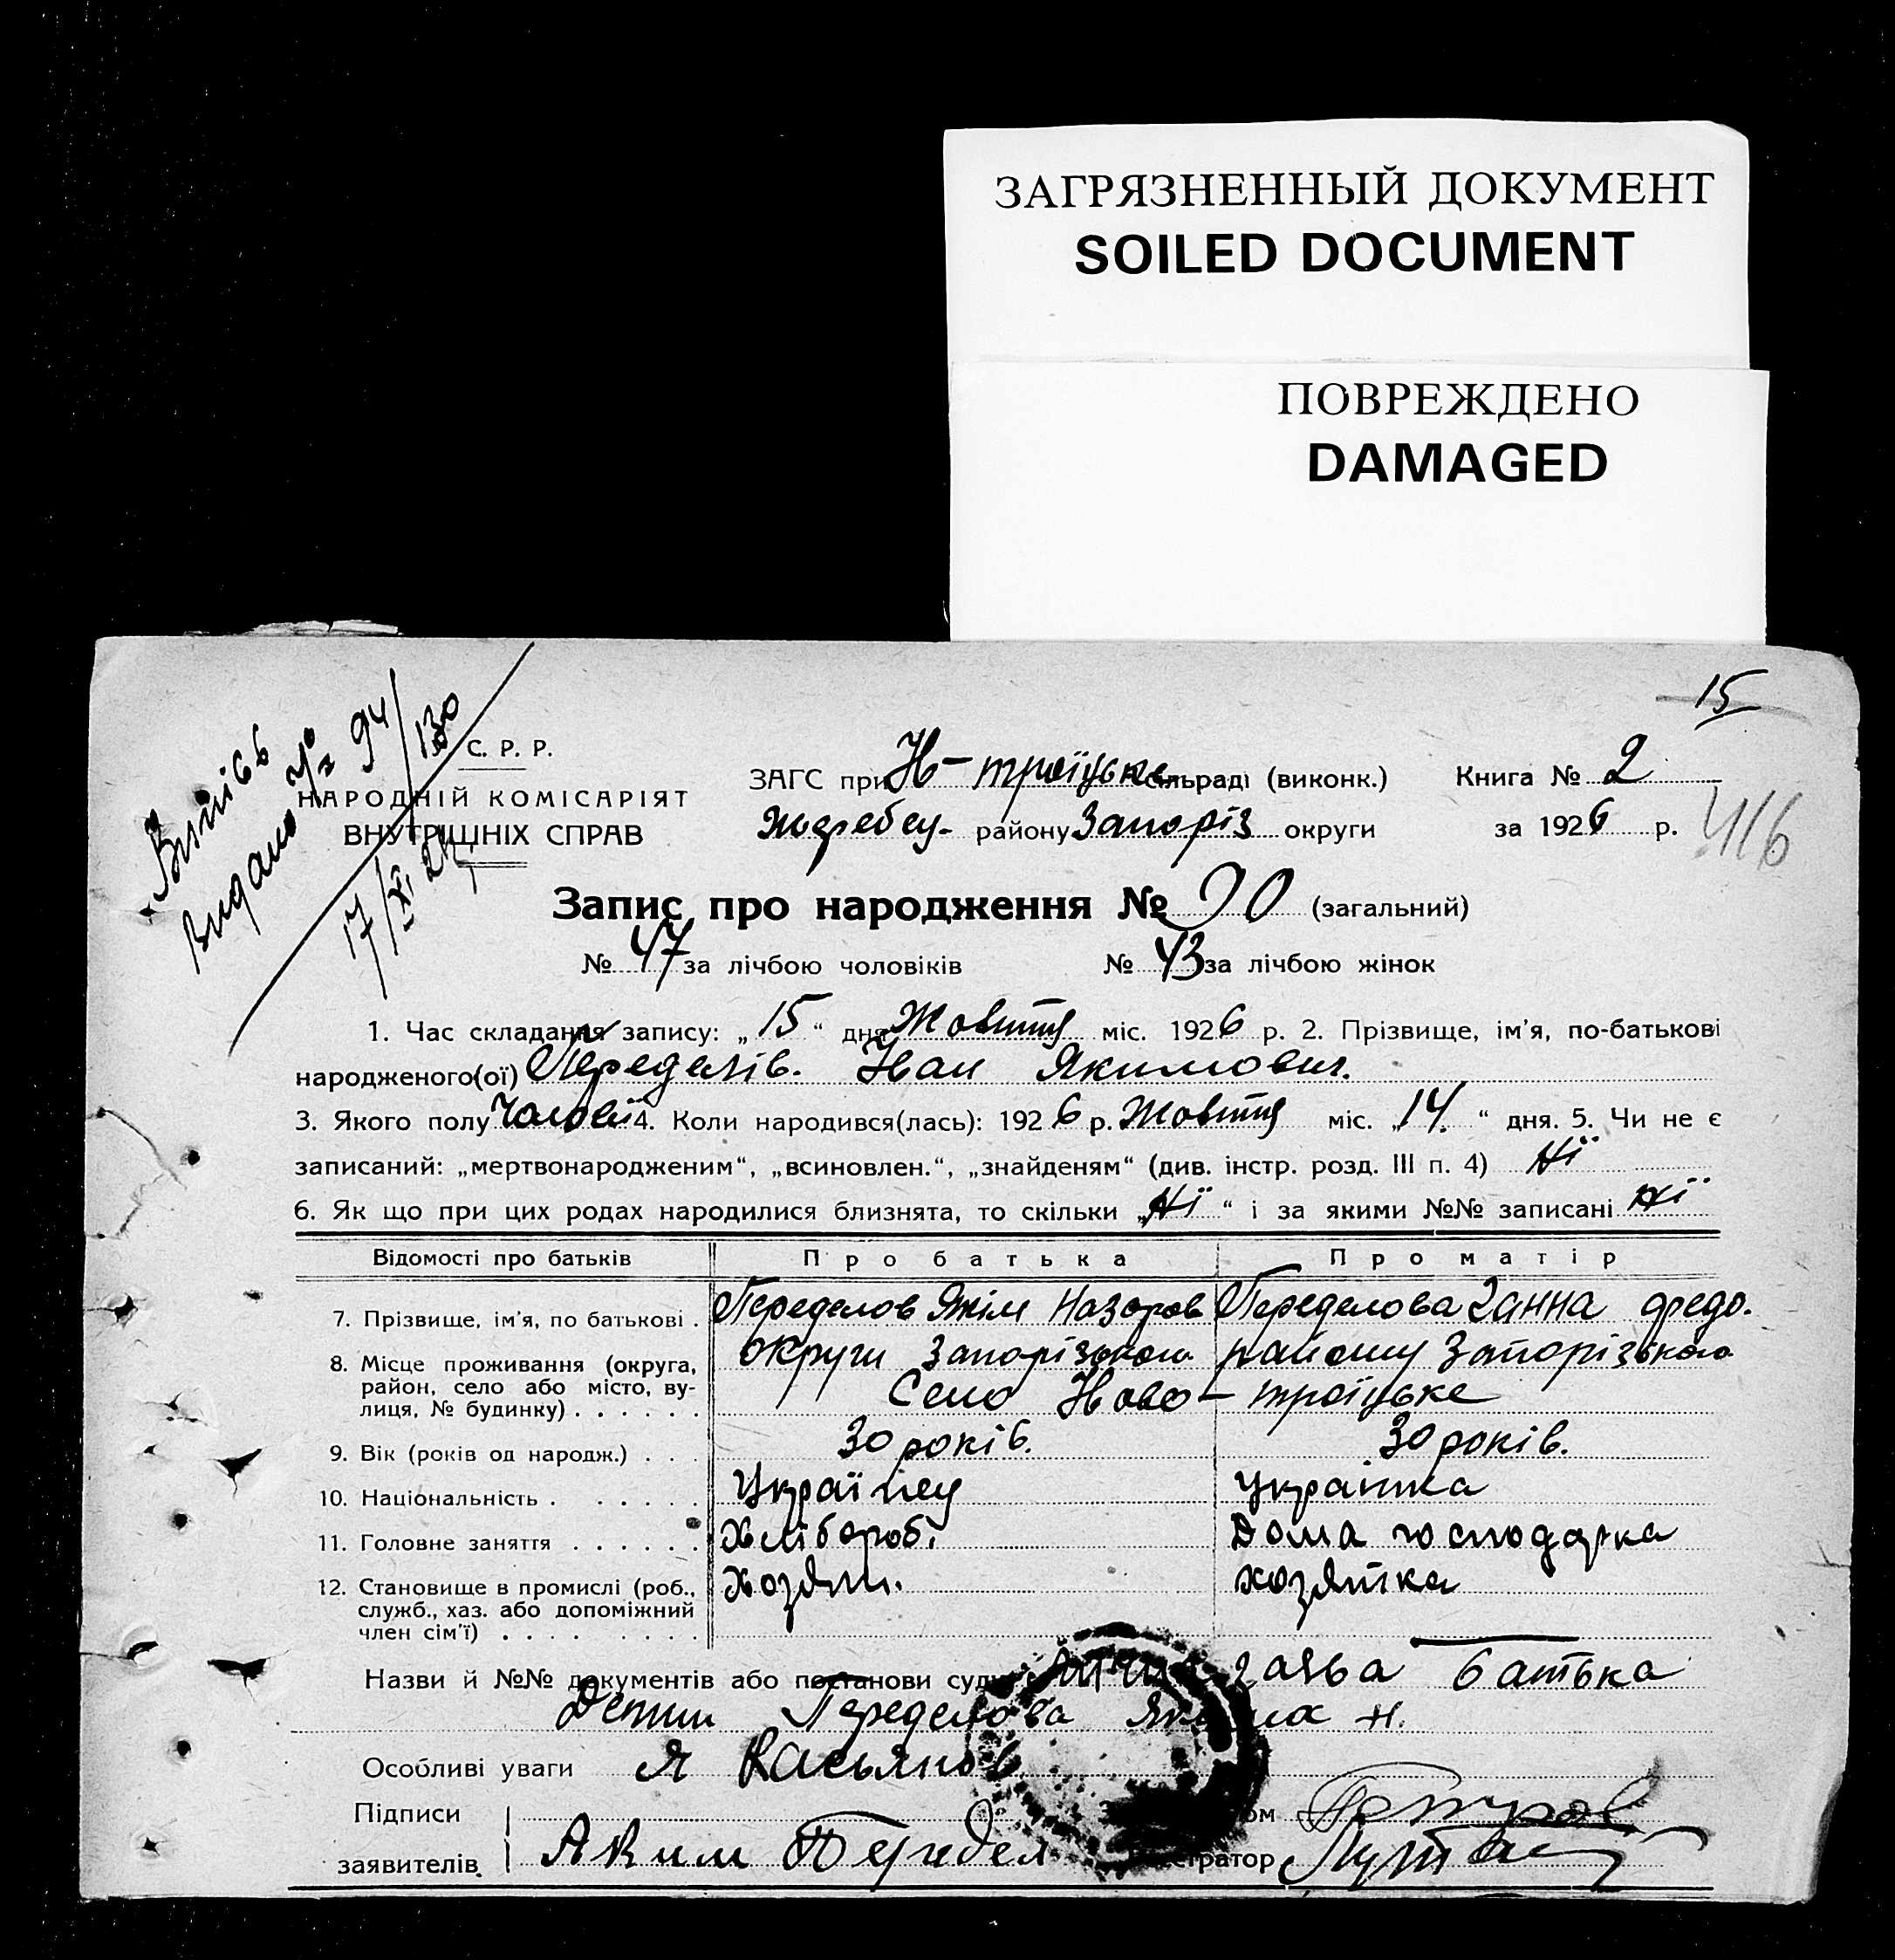 ЗАГРЯЗНЕННЫЙ ДОКУМЕНТ
SOILED DOCUMENT
ПОВРЕЖДЕНО
DAMAGED
15
Видано 94/130
17/XI
С. Р. Р.
НАРОДНІЙ КОМІСАРІЯТ
ВНУТРІШНІХ СПРАВ
ЗАГС при Н-троїцьке сільраді (виконк.) Книга № 2
району Запоріз округи за 1926 р.
416
Запис про народження № 90 (загальний)
№ 47 за лічбою чоловіків № 43 за лічбою жінок
1. Час складання запису: „15“ дня Жовтня міс. 1926 р. 2. Прізвище, ім’я, по-батькові
народженого(ої) Переделів. Іван Якимович.
3. Якого полу 4. Коли народився(лась): 1926 р. Жовтня міс. „14.“ дня. 5. Чи не є
записаний: „мертвонародженим“, „всиновлен.“, „знайденям“ (див. інстр. розд. III п. 4) Ні
6. Як що при цих родах народилися близнята, то скільки „Ні“ і за якими №№ записані ні
Відомості про батьків Про батька Про матір
7. Прізвище, ім’я, по батькові . Переделов Якім Назаров Переделова Ганна
8. Місце проживання (округа, округи Запорізького району Запорізького
район, село або місто, ву- Село Ново-троїцьке
лиця, № будинку) . . . . . .
9. Вік (років од народж.) . . . 30 років. 30 років.
10. Національність . . . . . . Українец Українка
11. Головне заняття . . . . . . Хлібороб. Дома господарка
12. Становище в промислі (роб., Хозяин. хозяйка
служб., хаз. або допоміжний
член сім’ї) . . . . . . . .
Назви й №№ документів або постанови суду заява батька
Переделова Якима Н.
Особливі уваги Я Касьянов
Підписи
заявителів Аким Передел